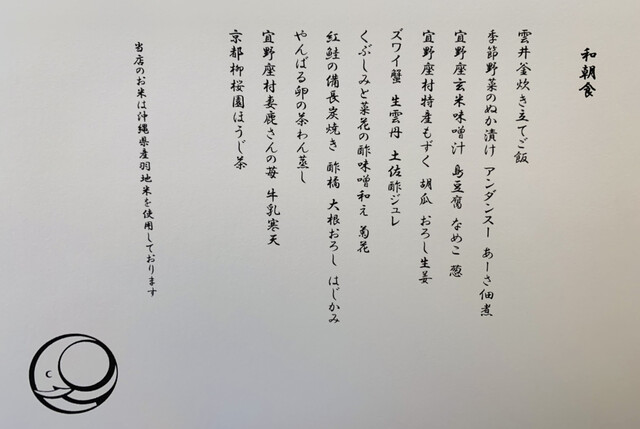 和朝食
雲井釜炊き立てご飯
季節野菜のぬか漬け アンダンスー あーさ佃煮
宜野座玄米味噌汁 島豆腐 なめこ 葱
宜野座村特産もずく 胡瓜 おろし生姜
ズワイ蟹 生雲丹 土佐酢ジュレ
くぶしみと菜花の酢味噌和え 菊花
紅鮭の備長炭焼き 酢橘 大根おろし はじかみ
やんばる卵の茶わん蒸し
宜野座村妻鹿さんの苺 牛乳寒天
京都柳桜園ほうじ茶
当店のお米は沖縄県産羽地米を使用しております